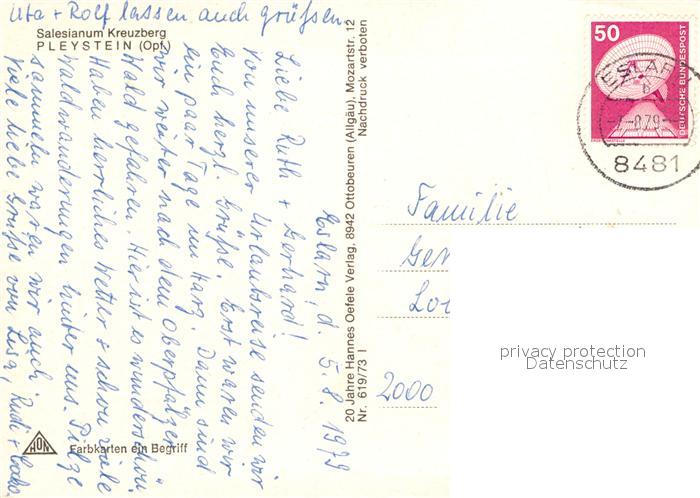 Uta + Rolf lassen auch grüßen.
Salesianum Kreuzberg
PLEYSTEIN (Opf.)
Eslarn, d. 5.8.1979
Liebe Ruth + Gerhard!
Von unserer Urlaubsreise senden wir
Euch herzl. Grüße. Erst waren wir
ein paar Tage im Harz. Dann sind
wir weiter nach dem Oberpfälzer
Wald gefahren. Hier ist es wunderschön.
Haben herrliches Wetter + schon viele
Waldwanderungen hinter uns. Pilze
sammeln waren wir auch.
Viele liebe Grüße von Lisa, Rudi +
HON
Farbkarten ein Begriff
20 Jahre Hannes Oefele Verlag, 8942 Ottobeuren (Allgäu), Mozartstr. 12
Nr. 619/73 I Nachdruck verboten
50
DEUTSCHE BUNDESPOST
ESLARN
8481
Familie
2000
privacy protection
Datenschutz